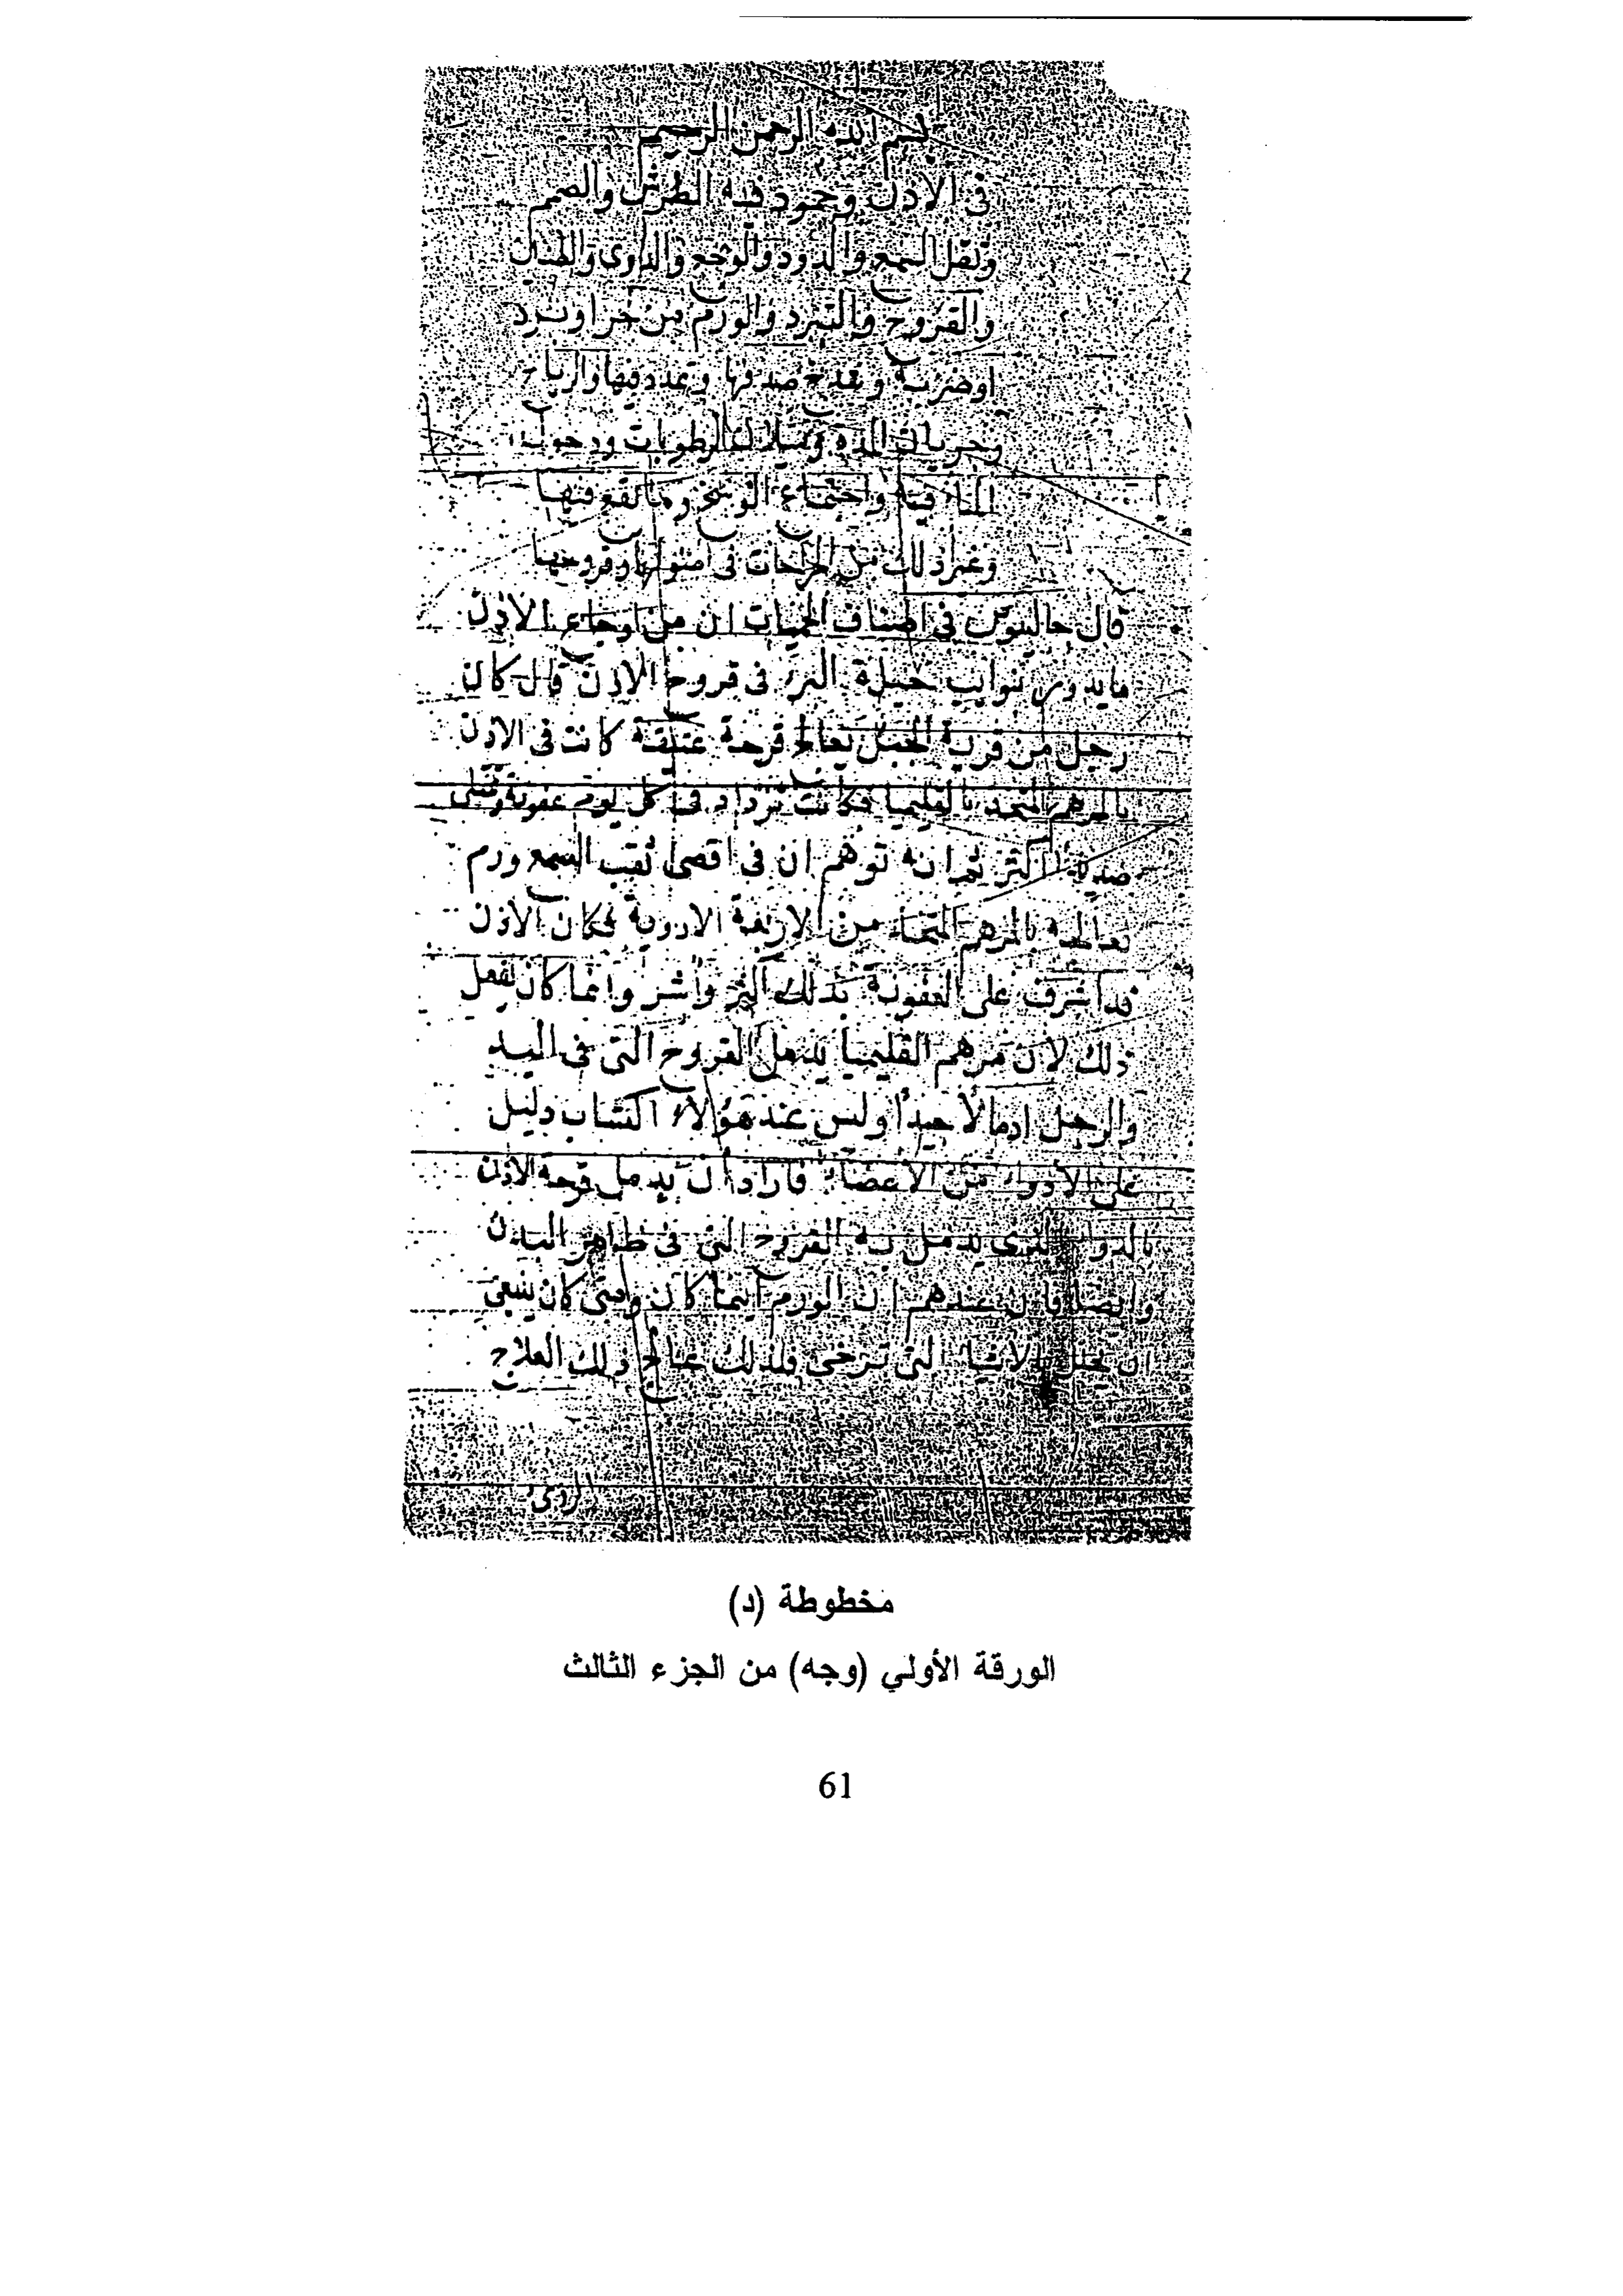 بسم الله الرحمن الرحيم
في الاذن وجمود فيه الطرش والصمم
وثقل السمع والدود والوجع والدوى والطنين
والقروح والتبرد والورم من حر او برد
او ضربة وفدخ صدفها وتمدد فيها والرياح
وجريان المدة وسيلان الرطوبات ودخول
الماء فيه واجتماع الوسخ وما يقع فيها
وغير ذلك من الجراحات في اصولها وقروحها
قال جالينوس في اصناف الحميات ان من اوجاع الاذن
ما يدور بنوايب حيلة البرء في قروح الاذن قال كان
رجل من قرية الجبل يعالج قرحة عتيقة كانت في الاذن
بالمرهم المتخذ بالقليميا فكانت تزداد في كل يوم عفونة وتمتلى
صديدا اكثر ثم انه توهم ان في اقصى ثقب السمع ورم
فعالجه بالمرهم المتخذ من الاربعة الادوية فكان الاذن
قد اشرف على العفونة بذلك اكثر واشر وانما كان يفعل
ذلك لان مرهم القليميا يدمل القروح التي في اليد
والرجل ادمالا جيدا وليس عند هؤلاء اكتساب دليل
على الادواء من الاعضاء فاراد ان يدمل قرحة الاذن
بالدواء الذى يدمل به القروح التي في ظاهر البدن
وايضا فان عندهم ان الورم اينما كان ومتى كان ينبغى
ان يحلل بالاشياء التي ترخى فلذلك عالج ذلك العلاج
الردى
مخطوطة (د)
الورقة الأولي (وجه) من الجزء الثالث
61